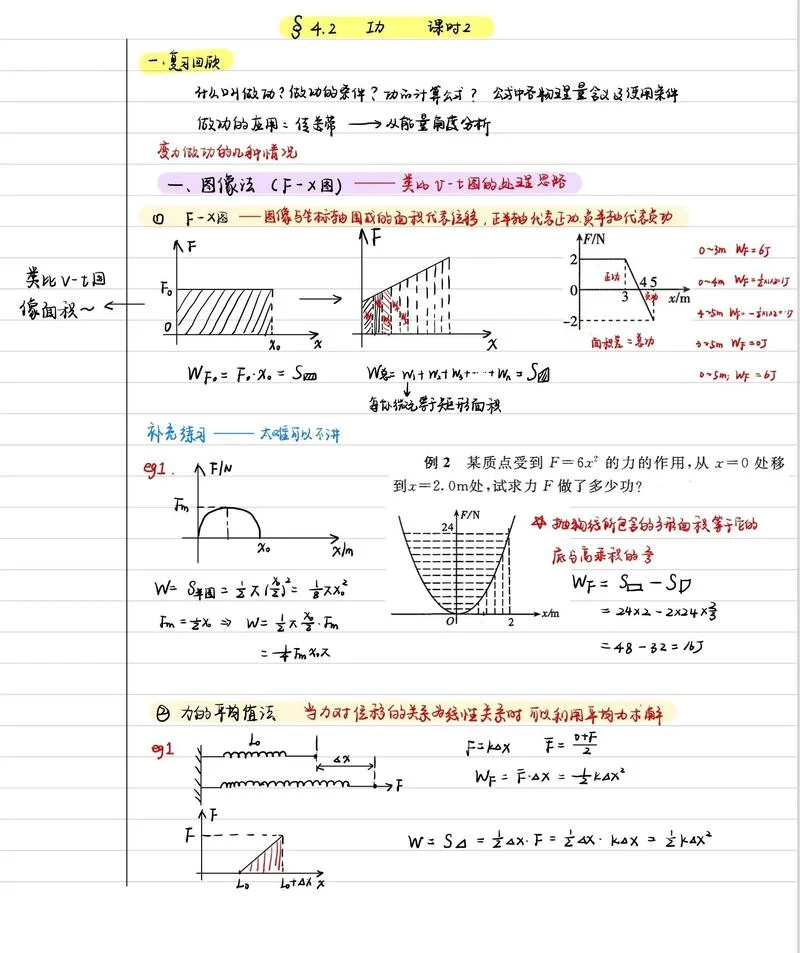 § 4.2 功 课时2
一、复习回顾
什么叫做功？做功的条件？功的计算公式？ 公式中各物理量含义及使用条件
做功的应用：传送带 → 从能量角度分析
变力做功的几种情况
一、图像法（F-X图）—— 类比 v-t图的处理思路
① F-x图 —— 图像与坐标轴围成的面积代表位移，正半轴代表正功，负半轴代表负功
类比v-t图
像面积~ ←
F
F₀
0
x₀
x
F
W₁
W₂
W₃
x
F/N
2
0
-2
正功
3
4 5
负功
x/m
面积差=总功
0~3m WF=6J
0~4m WF=
4~5m WF=
3~5m WF=0J
0~5m; WF=6J
WF₀= F₀·x₀ = S
W总= W₁+W₂+W₃+····+Wn = S
每份微元等于矩形面积
补充练习 —— 太难可以不讲
eg1.
F/N
Fm
x₀
x/m
W= S半圆 = ½π(x₀/2)² = ⅛πx₀²
Fm=½x₀ ⇒ W=½π x₀/2·Fm
=¼Fmx₀π
例 2 某质点受到 F=6x² 的力的作用,从 x=0 处移
到x=2.0m处,试求力 F 做了多少功?
F/N
24
O
2
x/m
☆ 抛物线所包含的 面积等于它的
底与高乘积的⅔
WF= S - S
= 24×2 - 2×24×⅔
=48-32=16J
② 力的平均值法 当力对位移的关系为线性关系时 可以利用平均力求解
eg1
L₀
Δx
F
F=kΔx F̄= (0+F)/2
WF= F̄·Δx = ½kΔx²
F
F
L₀
L₀+Δx
x
W= S△ = ½Δx·F = ½Δx·kΔx = ½kΔx²